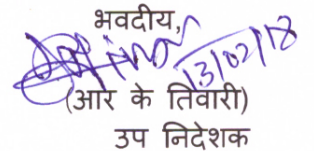 भवदीय,
13/02/18
(आर के तिवारी)
उप निदेशक